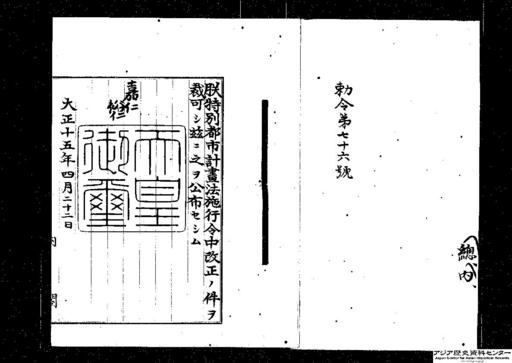 勅令第七十六號
總
内
朕特別都市計畫法施行令中改正ノ件ヲ
裁可シ玆ニ之ヲ公布セシム
嘉仁
裕仁
天皇
御璽
大正十五年四月二十二日
内
閣
アジア歴史資料センター
Japan Center for Asian Historical Records